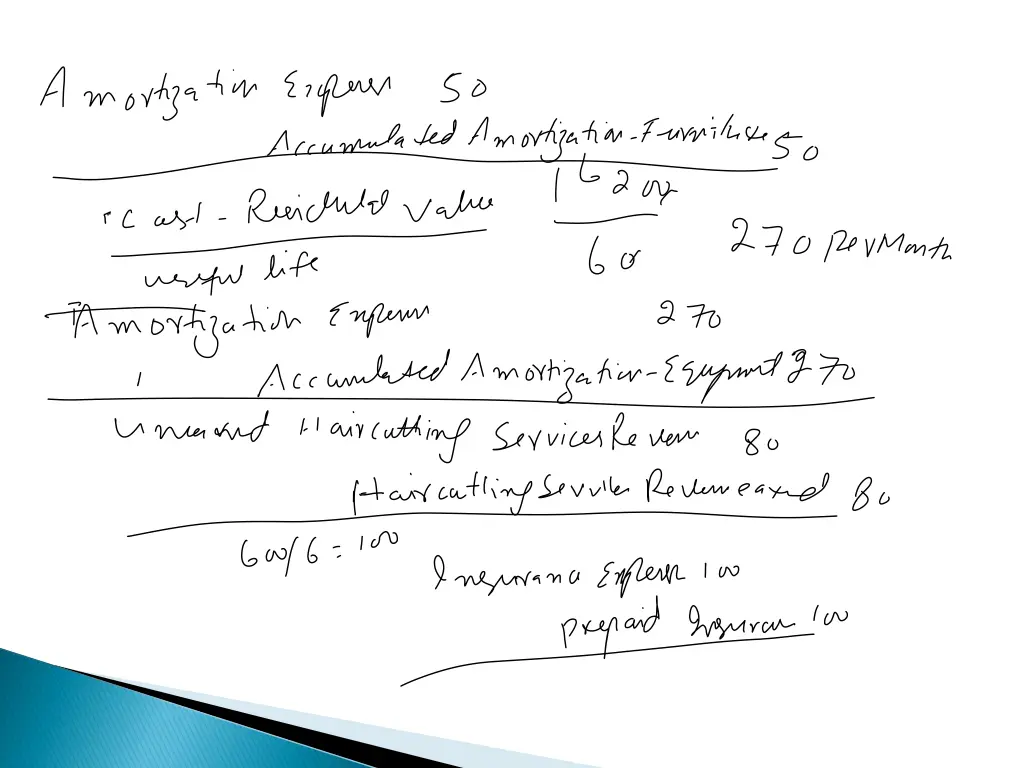 Amortization Expense 50
Accumulated Amortization-Furniture 50
Cost - Residual Value
useful life
16200
60
270 per Month
Amortization Expense 270
Accumulated Amortization-Equipment 270
Unearned Haircutting Services Revenue 80
Haircutting Services Revenue earned 80
600/6 = 100
Insurance Expense 100
prepaid Insurance 100